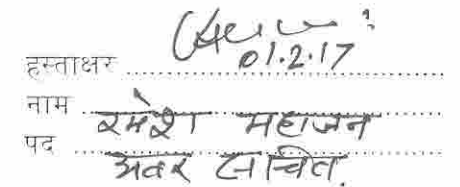 हस्ताक्षर 01.2.17
नाम रमेश महाजन
पद अवर सचिव